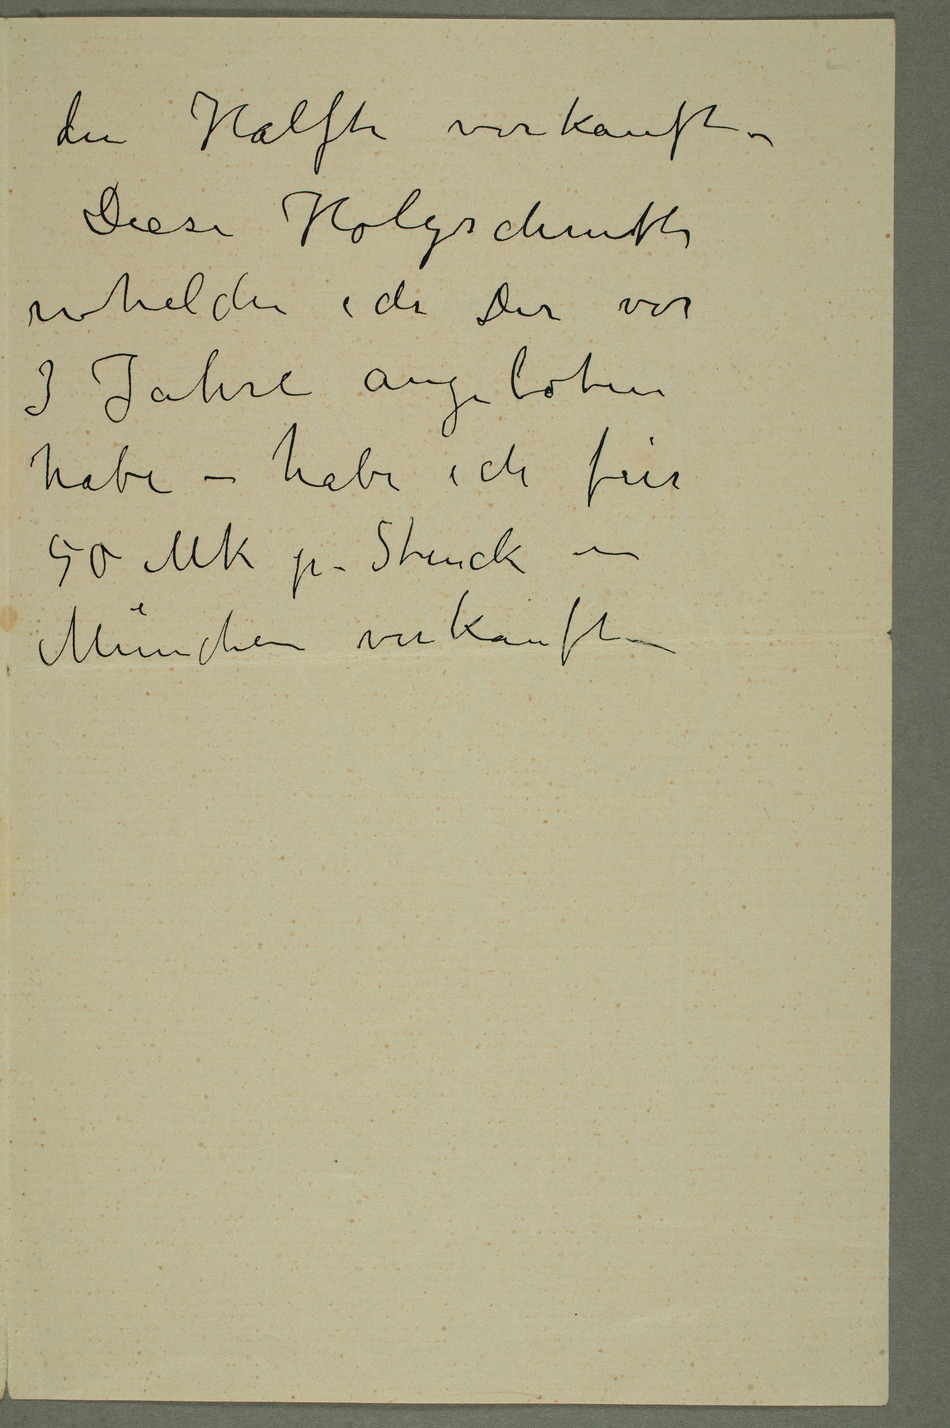 die Hälfte verkauft –
Diese Holzschnitte
welche ich Dir vor
3 Jahre angeboten
habe – habe ich für
50 Mk p. Stück in
München verkauft –